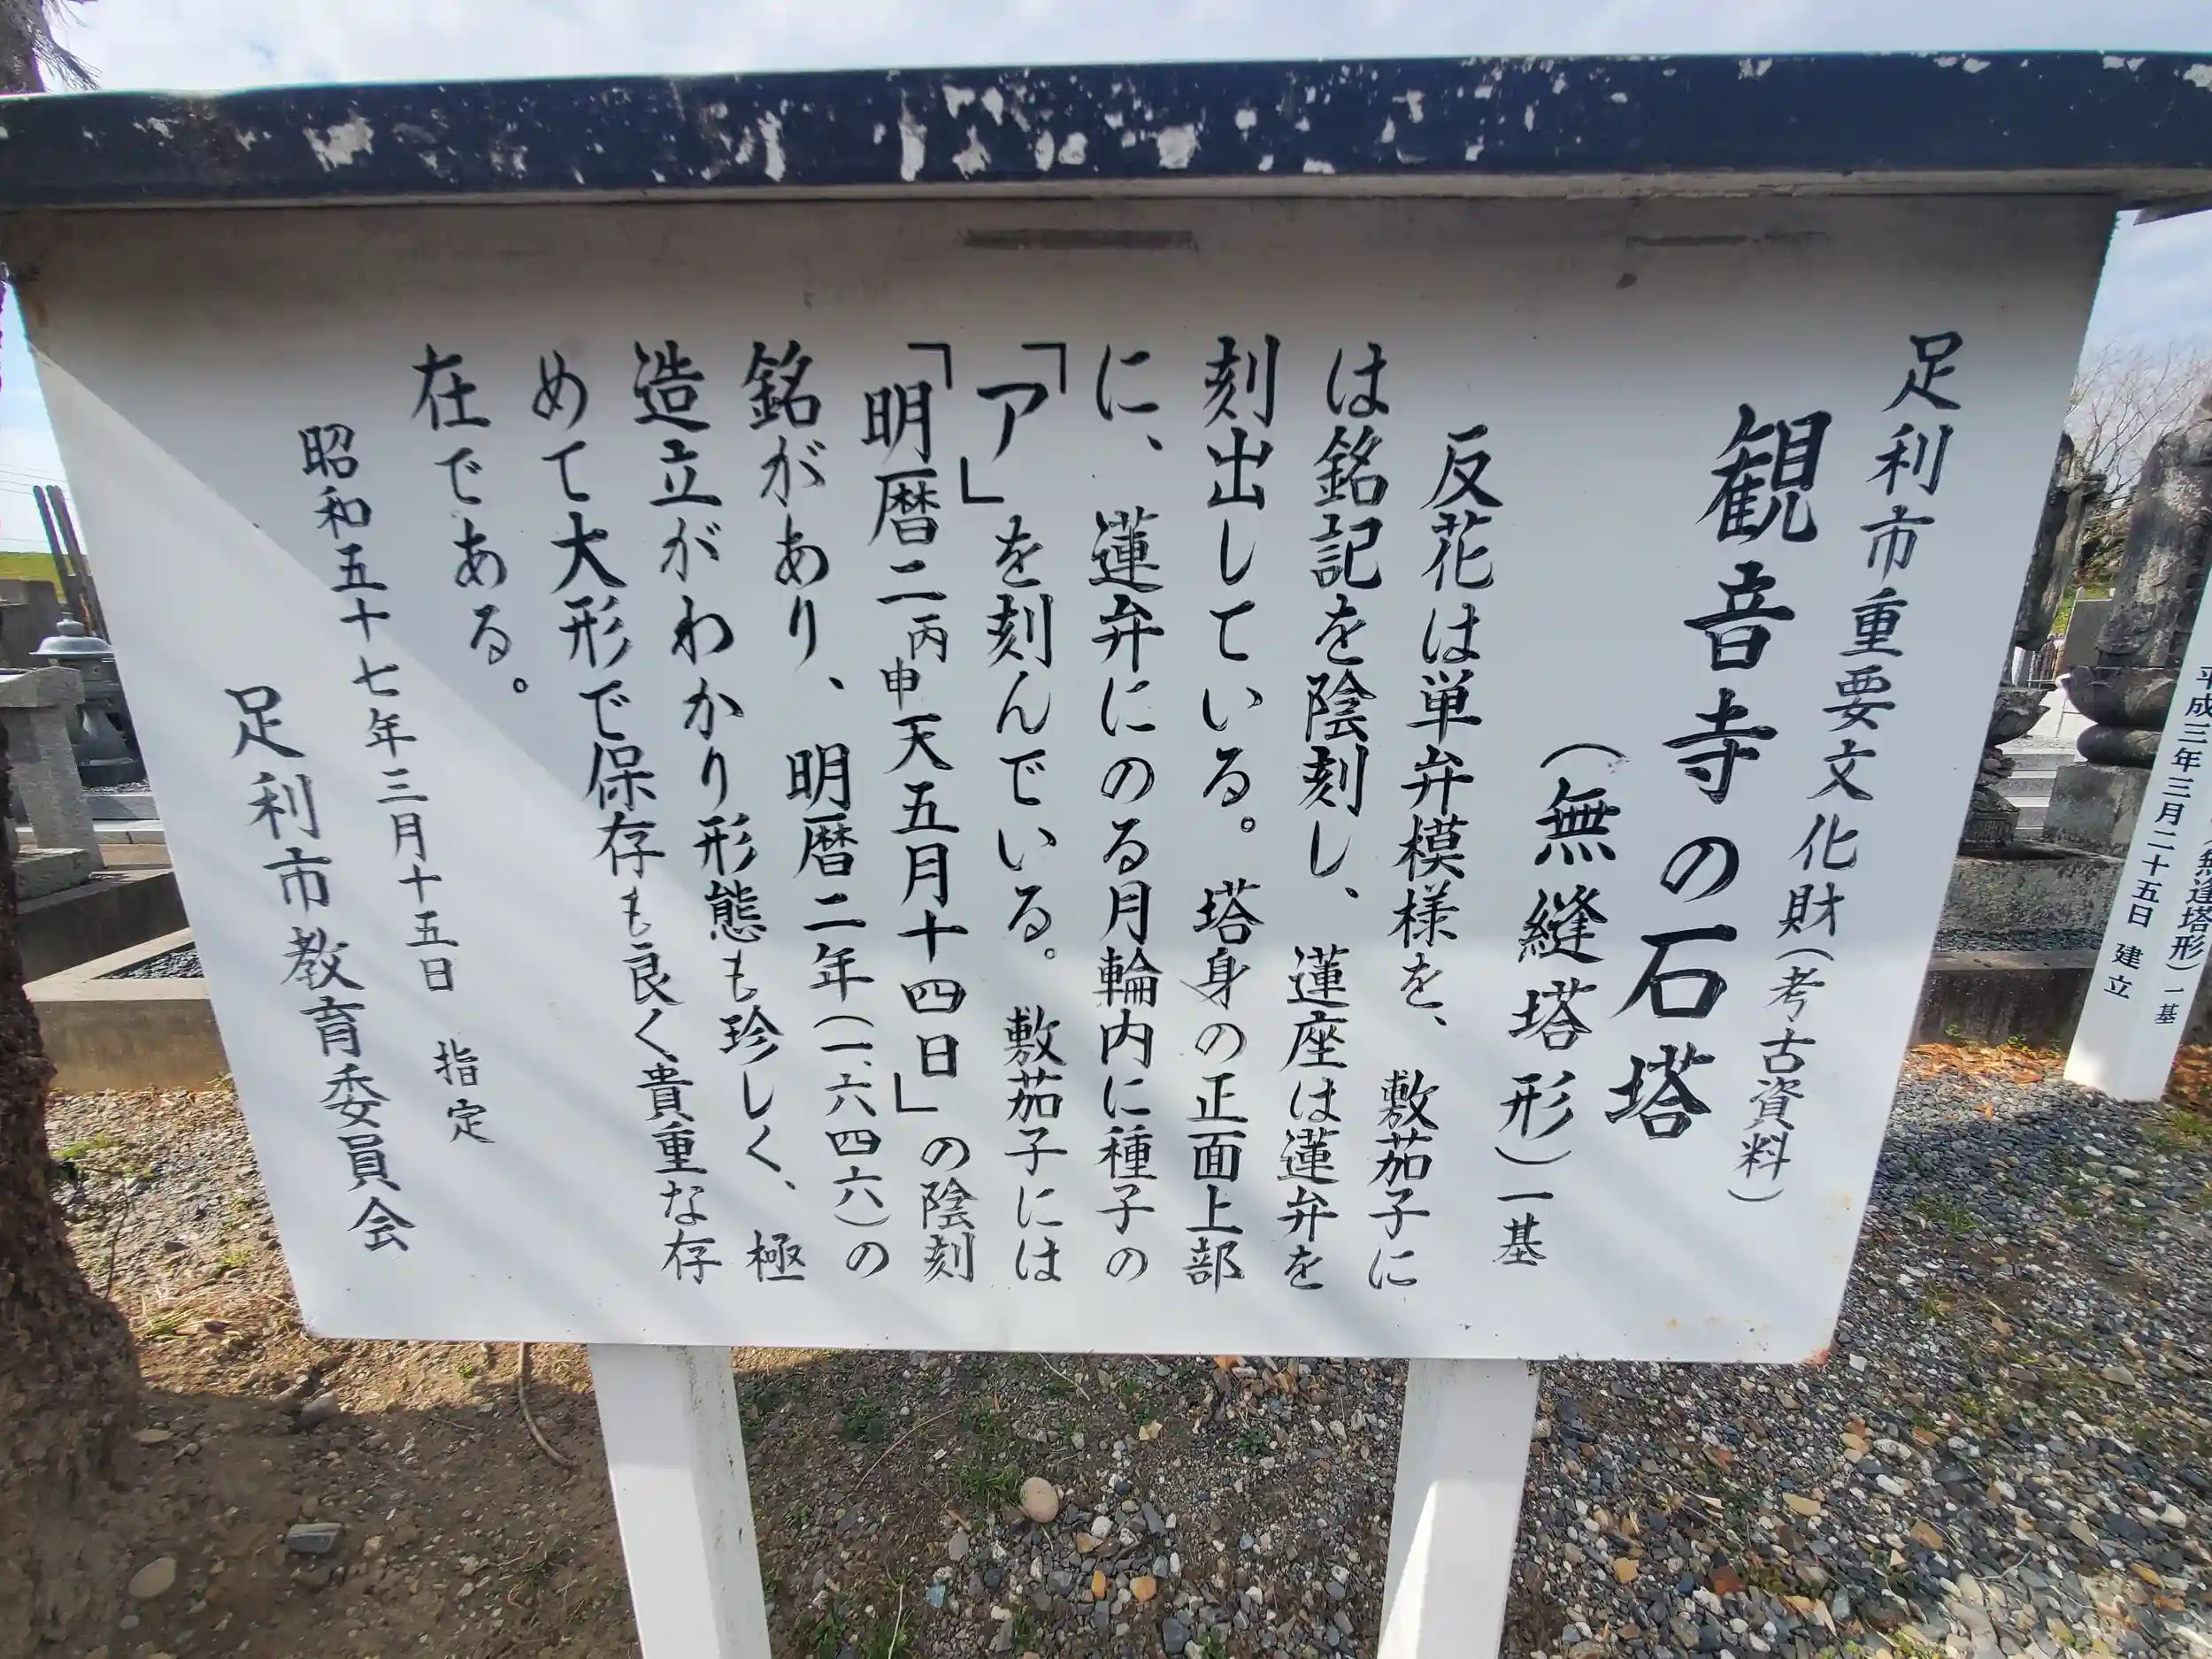 足利市重要文化財(考古資料)
観音寺の石塔
(無縫塔形)一基
反花は単弁模様を、敷茄子に
は銘記を陰刻し、蓮座は蓮弁を
刻出している。塔身の正面上部
に、蓮弁にのる月輪内に種子の
「ア」を刻んでいる。敷茄子には
「明暦二丙申天五月十四日」の陰刻
銘があり、明暦二年(一、六四六)の
造立がわかり形態も珍しく、極
めて大形で保存も良く、貴重な存
在である。
昭和五十七年三月十五日 指定
足利市教育委員会
無逢塔形)一基
平成三年三月二十五日 建立